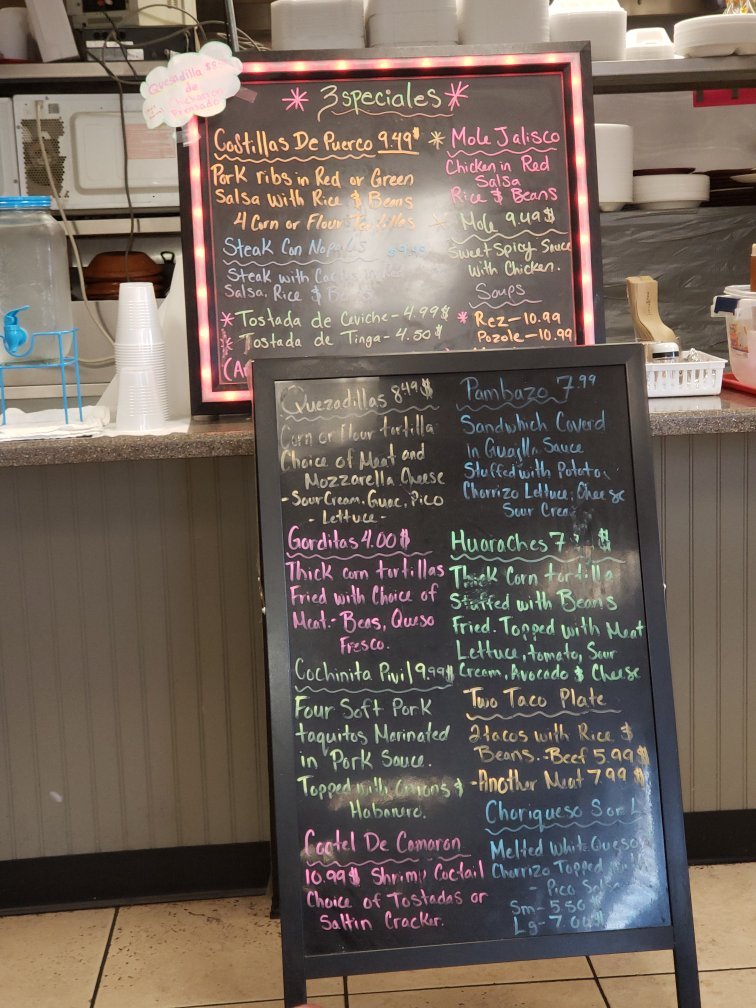 Quesadilla
de
Chicharron
Prensado
3 speciales
Costillas De Puerco 9.49$
Pork ribs in Red or Green
Salsa with Rice & Beans
4 Corn or Flour Tortillas
Steak Con Nopales
Steak with
Salsa, Rice &
Tostada de Ceviche - 4.99$
Tostada de Tinga - 4.50$
Mole Jalisco
Chicken in Red
Salsa
Rice & Beans
Mole 9.49$
Sweet Spicy Sauce
With Chicken.
Soups
Rez - 10.99
Pozole - 10.99
Quezadillas 8.49$
Corn or Flour tortilla
Choice of Meat and
Mozzarella Cheese
- Sour Cream. Guac, Pico
- Lettuce -
Gorditas 4.00$
Thick corn tortillas
Fried with Choice of
Meat.- Beas, Queso
Fresco.
Cochinita Pivil 9.99$
Four Soft Pork
taquitos Marinated
in Pork Sauce.
Topped with Onions &
Habanero.
Coctel De Camaron
10.99$ Shrimp Coctail
Choice of Tostadas or
Saltin Cracker.
Pambazo 7.99
Sandwhich Coverd
in Guajlla Sauce
Stuffed with Potatos
Chorrizo Lettuce, Cheese
Sour Crea
Huaraches 7 $
Thick Corn tortilla
Stuffed with Beans
Fried. Topped with Meat
Lettuce, tomato, Sour
Cream, Avocado & Cheese
Two Taco Plate
2 tacos with Rice &
Beans. - Beef 5.99$
- Another Meat 7.99$
Choriqueso S or L
Melted White Queso
Chorrizo Topped
- Pico Salsa
Sm - 5.50$
Lg -